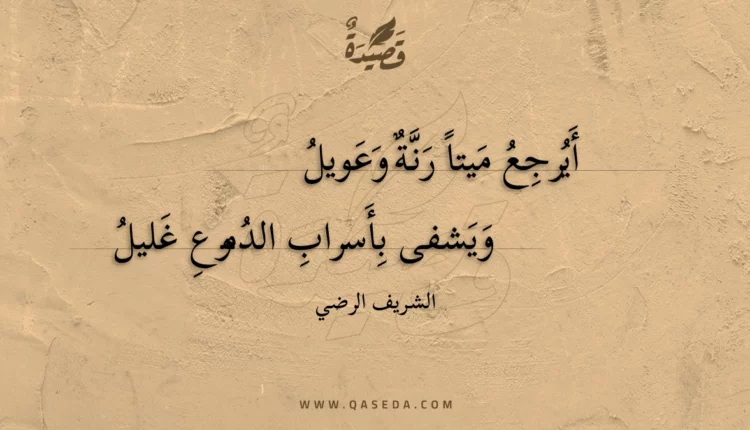 قَصِيْدَةٌ
أَيُرجِعُ مَيتاً رَنَّةٌ وَعَويلُ
وَيَشفى بِأَسرابِ الدُموعِ غَليلُ
الشريف الرضي
WWW.QASEDA.COM